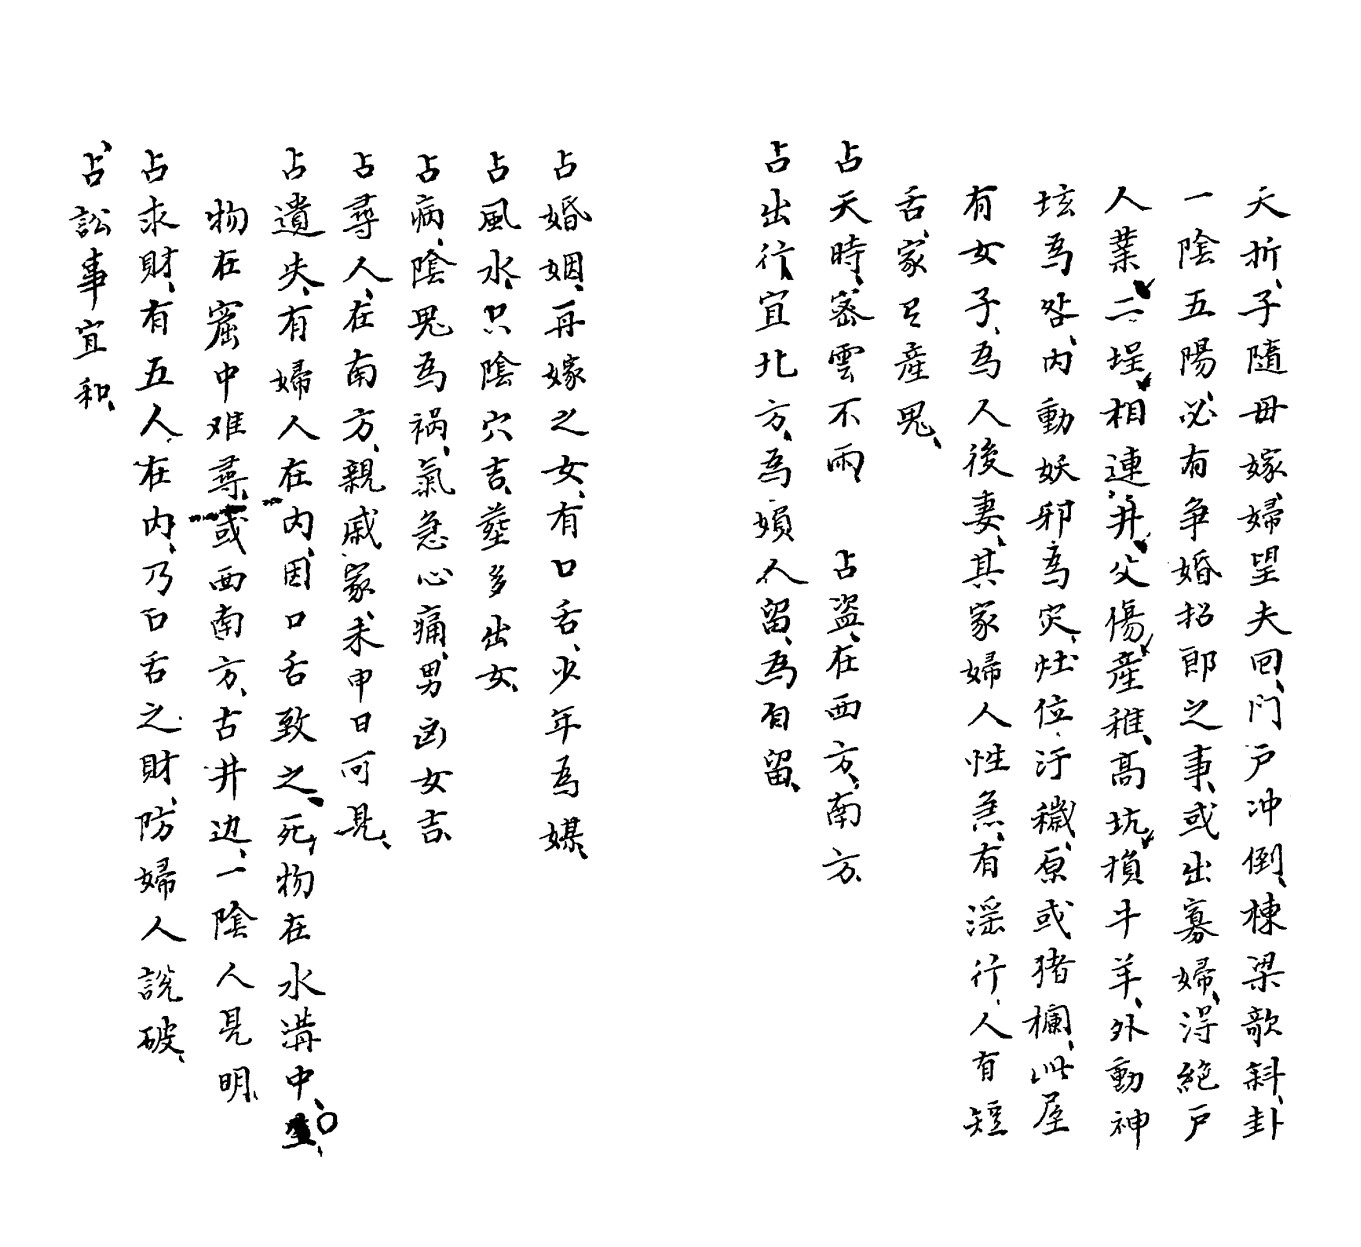 天折、子隨母嫁、婦望夫回、门户冲倒、棟梁歌斜、卦
一陰五陽、必有争婚招郎之事、或出寡婦、淂絶户
人業、二埕、相連、井、父傷、産稚、高坑、損牛羊、外動神
坛爲咎、内動妖邪爲災、灶位汙穢、原或猪欄、此屋
有女子、為人後妻、其家婦人性急、有淫行、人有短
舌、家已産鬼、
占天時、密雲不雨　占盜、在西方、南方、
占出行、宜北方、爲嬪人留、爲自留、
占婚姻、再嫁之女、有口舌、少年爲媒、
占風水、只陰穴吉、葬多出女、
占病、陰鬼爲祸、氣急心痛、男凶女吉、
占尋人、在南方、親戚家、未申日可見、
占遺失、有婦人在内、因口舌致之、死物在水溝中、
物在窟中难尋、或西南方、古井边、一陰人見明、
占求財、有五人、在内、乃口舌之財、防婦人説破、
占訟事宜和、